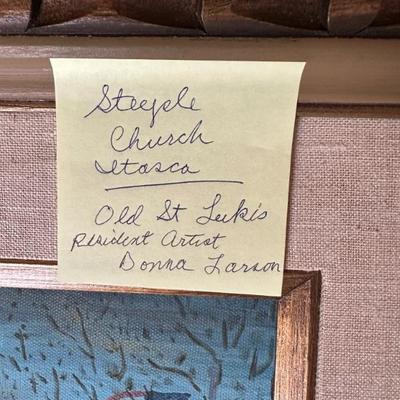 Steeple
Church
Itasca
Old St Luk's
Resident Artist
Donna Larson